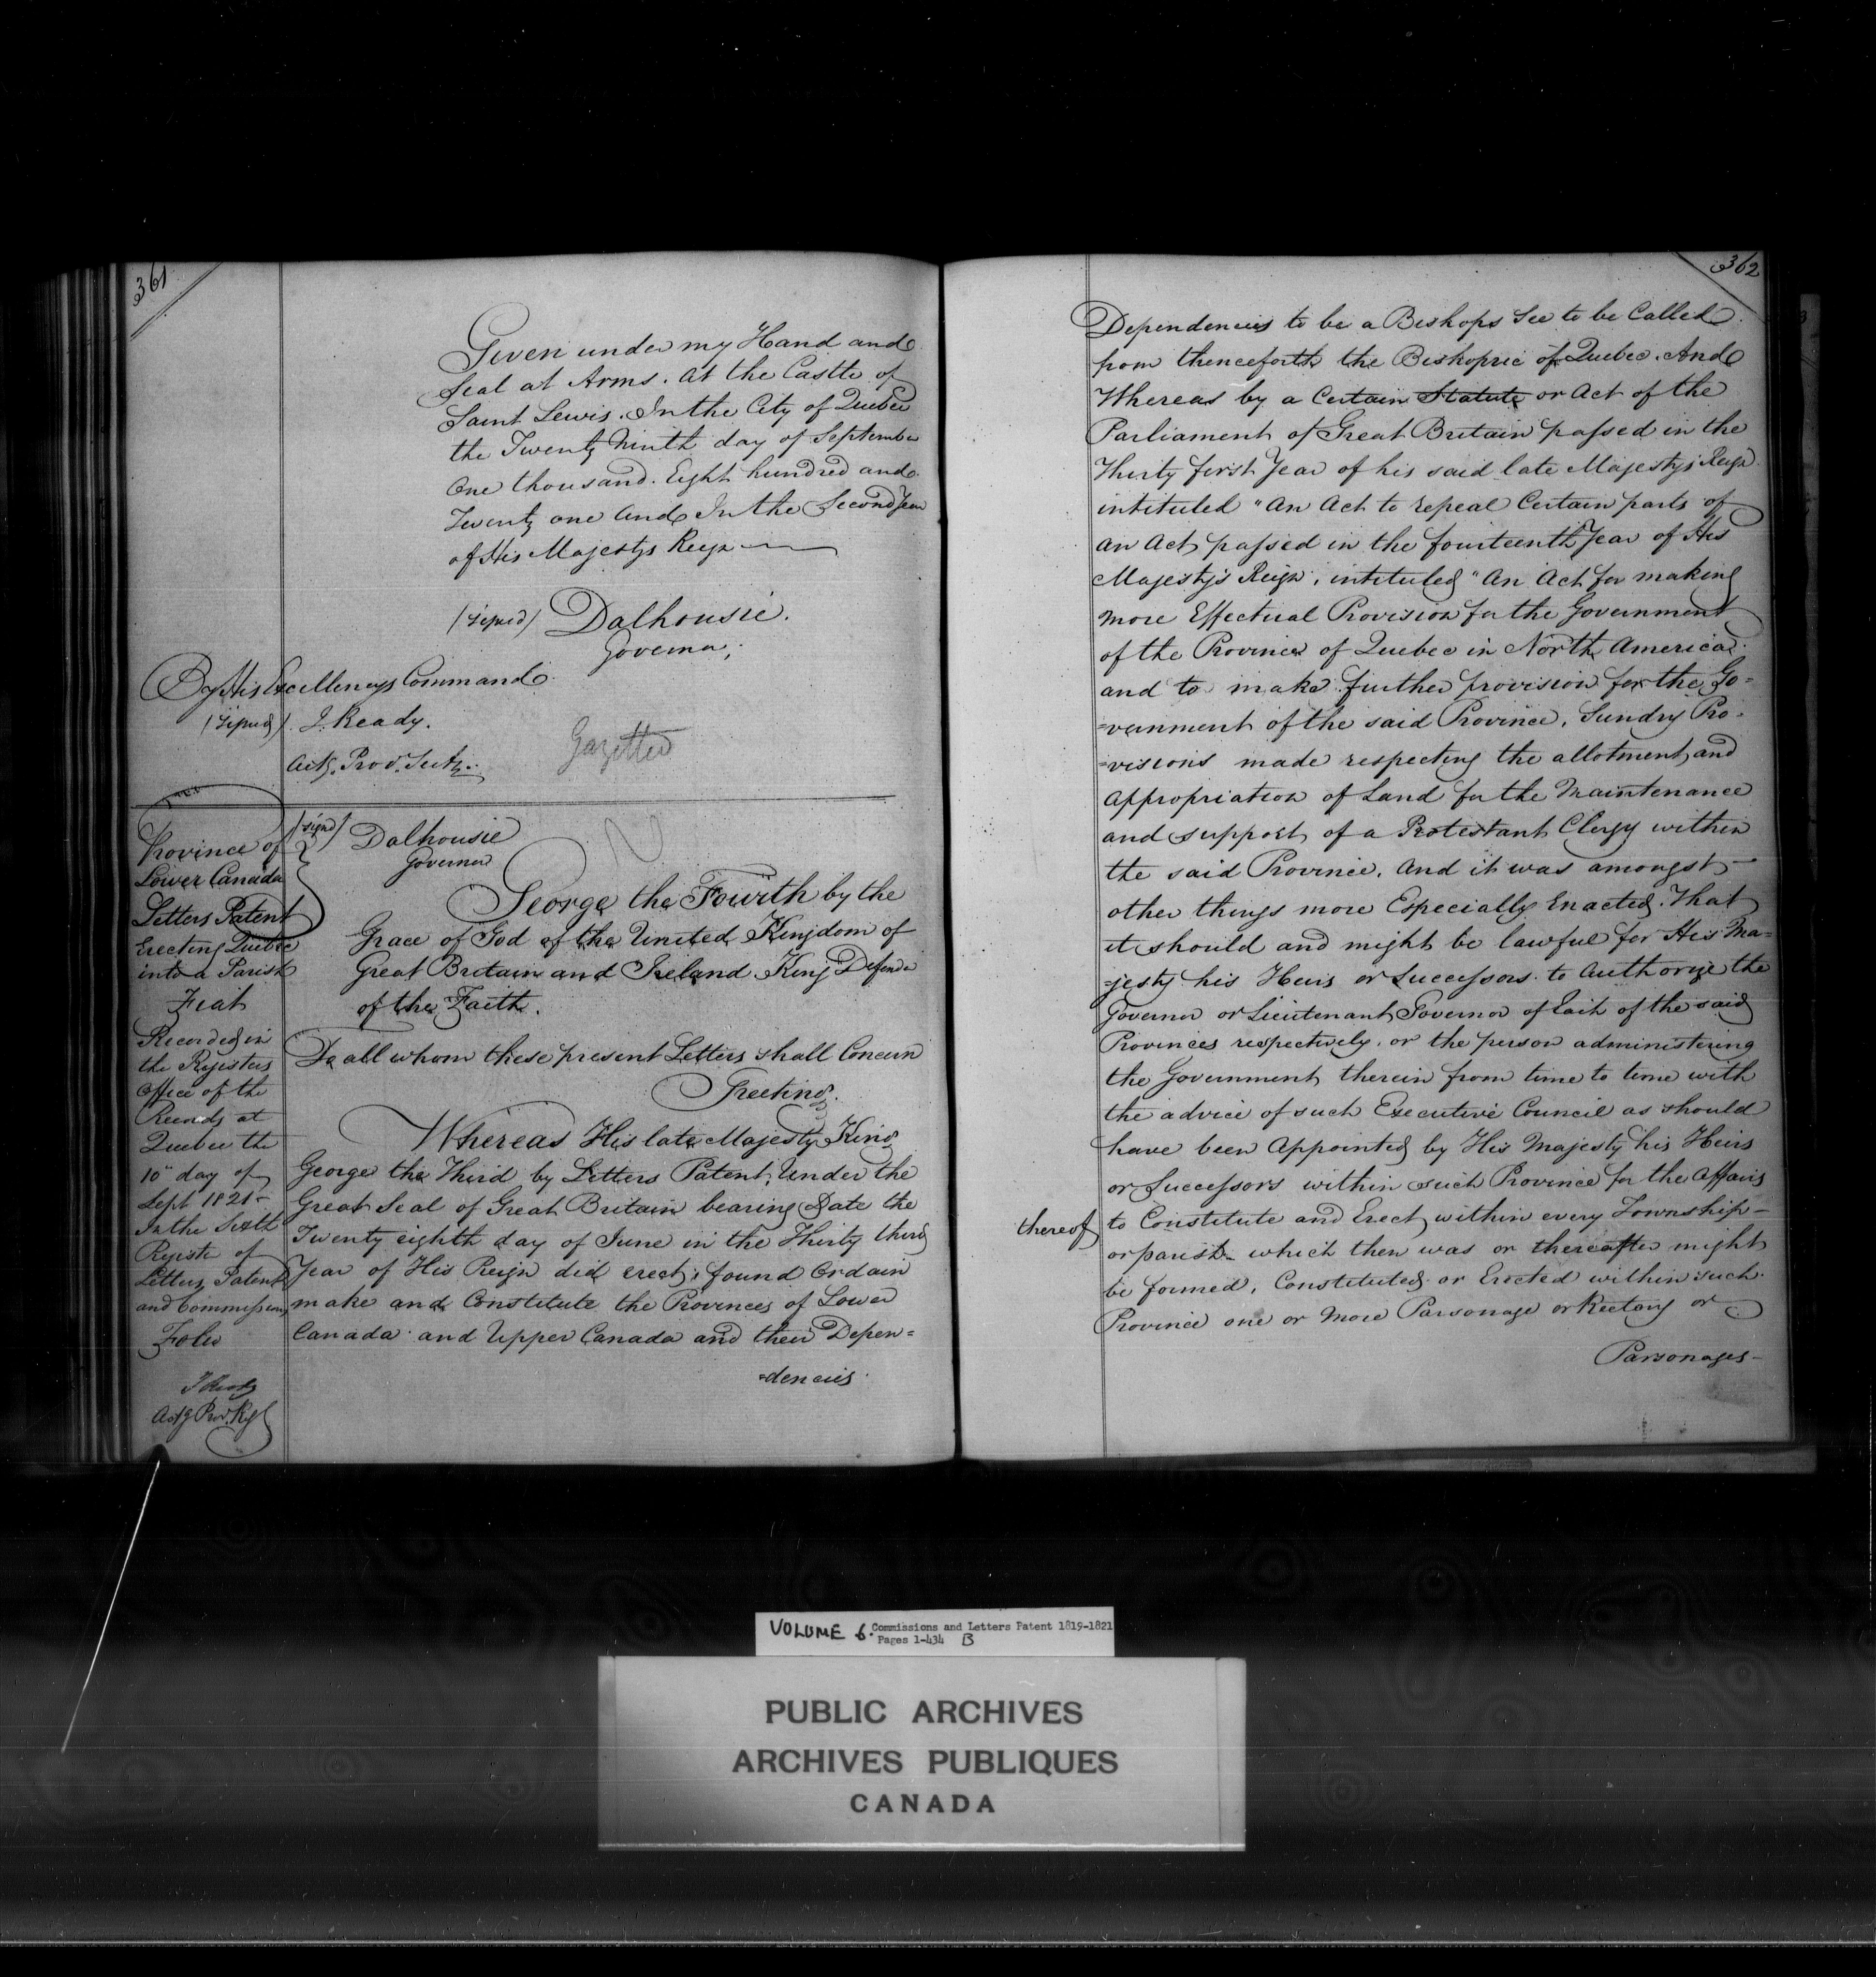 361
Given under my Hand and
Seal at Arms. At the Castle of
Saint Lewis. In the City of Quebec
the Twenty Ninth day of September
One thousand. Eight hundred and
Twenty one And In the Second Year
of His Majestys Reign
(Signed) Dalhousie.
Governor;
By His Excellencys Command
(Signed) J. Ready.
Actg. Prov. Secty.
Gazetted
Province of
Lower Canada
Letters Patent
Erecting Quebec
into a Parish
Fiat
Recorded in
the Registers
Office of the
Records at
Quebec the
10" day of
Sept 1821
In the Sixth
Registe of
Letters Patent
and Commissions
Folio
Actg Prov. Reg
(Signd) Dalhousie
Governor
George the Fourth by the
Grace of God of the United Kingdom of
Great Britain and Ireland King Defender
of the Faith.
To all whom these present Letters shall Concern
Greeting.
Whereas His late Majesty King
George the Third by Letters Patent, Under the
Great Seal of Great Britain bearing Date the
Twenty eighth day of June in the Thirty third
Year of His Reign did erect, found Ordain
make and Constitute the Provinces of Lower
Canada and Upper Canada and their Depen=
=dencies
362
Dependencies to be a Bishops See to be Called
from thenceforth the Bishopric of Quebec. And
Whereas by a Certain Statute or Act of the
Parliament of Great Britain passed in the
Thirty first Year of his said late Majestys Reign
intituled "An Act to repeal Certain parts of
an Act passed in the fourteenth Year of His
Majesty's Reign, intituled "An Act for making
more Effectual Provision for the Government
of the Province of Quebec in North America
and to make further provision for the Go=
=vernment of the said Province, Sundry Pro=
=visions made respecting the allotment and
Appropriation of Land for the Maintenance
and support of a Protestant Clergy within
the said Province, And it was amongst
other things more Especially Enacted. That
it should and might be lawful for His Ma=
=jesty his Heirs or Successors to Authorize the
Governor or Lieutenant Governor of Each of the said
Provinces respectively, or the person administering
the Government therein from time to time with
the advice of such Executive Council as should
have been Appointed by His Majesty his Heirs
or Successors within such Province for the Affairs
thereof
to Constitute and Erect within every Township
or parish which then was or thereafter might
be formed, Constituted or Erected within such
Province one or more Parsonage or Rectory or
Parsonages
VOLUME 6. Commissions and Letters Patent 1819-1821
Pages 1-434 B
PUBLIC ARCHIVES
ARCHIVES PUBLIQUES
CANADA